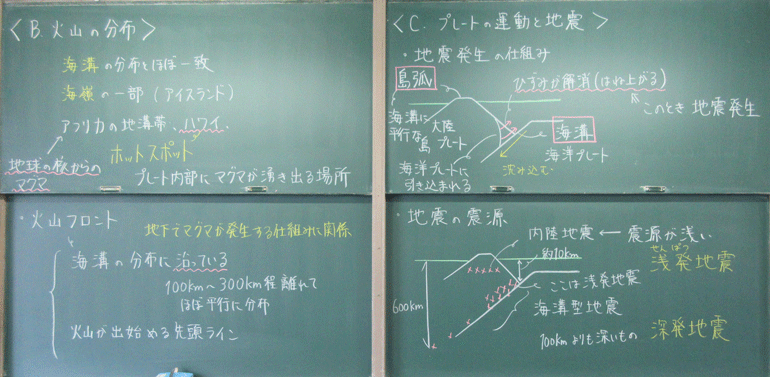 〈B. 火山の分布〉
海溝の分布とほぼ一致
海嶺の一部(アイスランド)
アフリカの地溝帯、ハワイ.
ホットスポット
地球の核からの
マグマ
プレート内部にマグマが湧き出る場所
・火山フロント
地下でマグマが発生する仕組みに関係
海溝の分布に沿っている
100kmへ300km程離れて
ほぼ平行に分布
火山が出始める先頭ライン
〈C. プレートの運動と地震〉
・地震発生の仕組み
島弧
ひずみが解消(はね上がる)
このとき地震発生
海溝に
平行な
島
大陸
プレート
海溝
海洋プレート
海洋プレートに
引き込まれる
沈み込む
・地震の震源
内陸地震 ← 震源が浅い
約10km
せんぱつ
浅発地震
600km
ここは浅発地震
海溝型地震
100kmよりも深いもの
深発地震